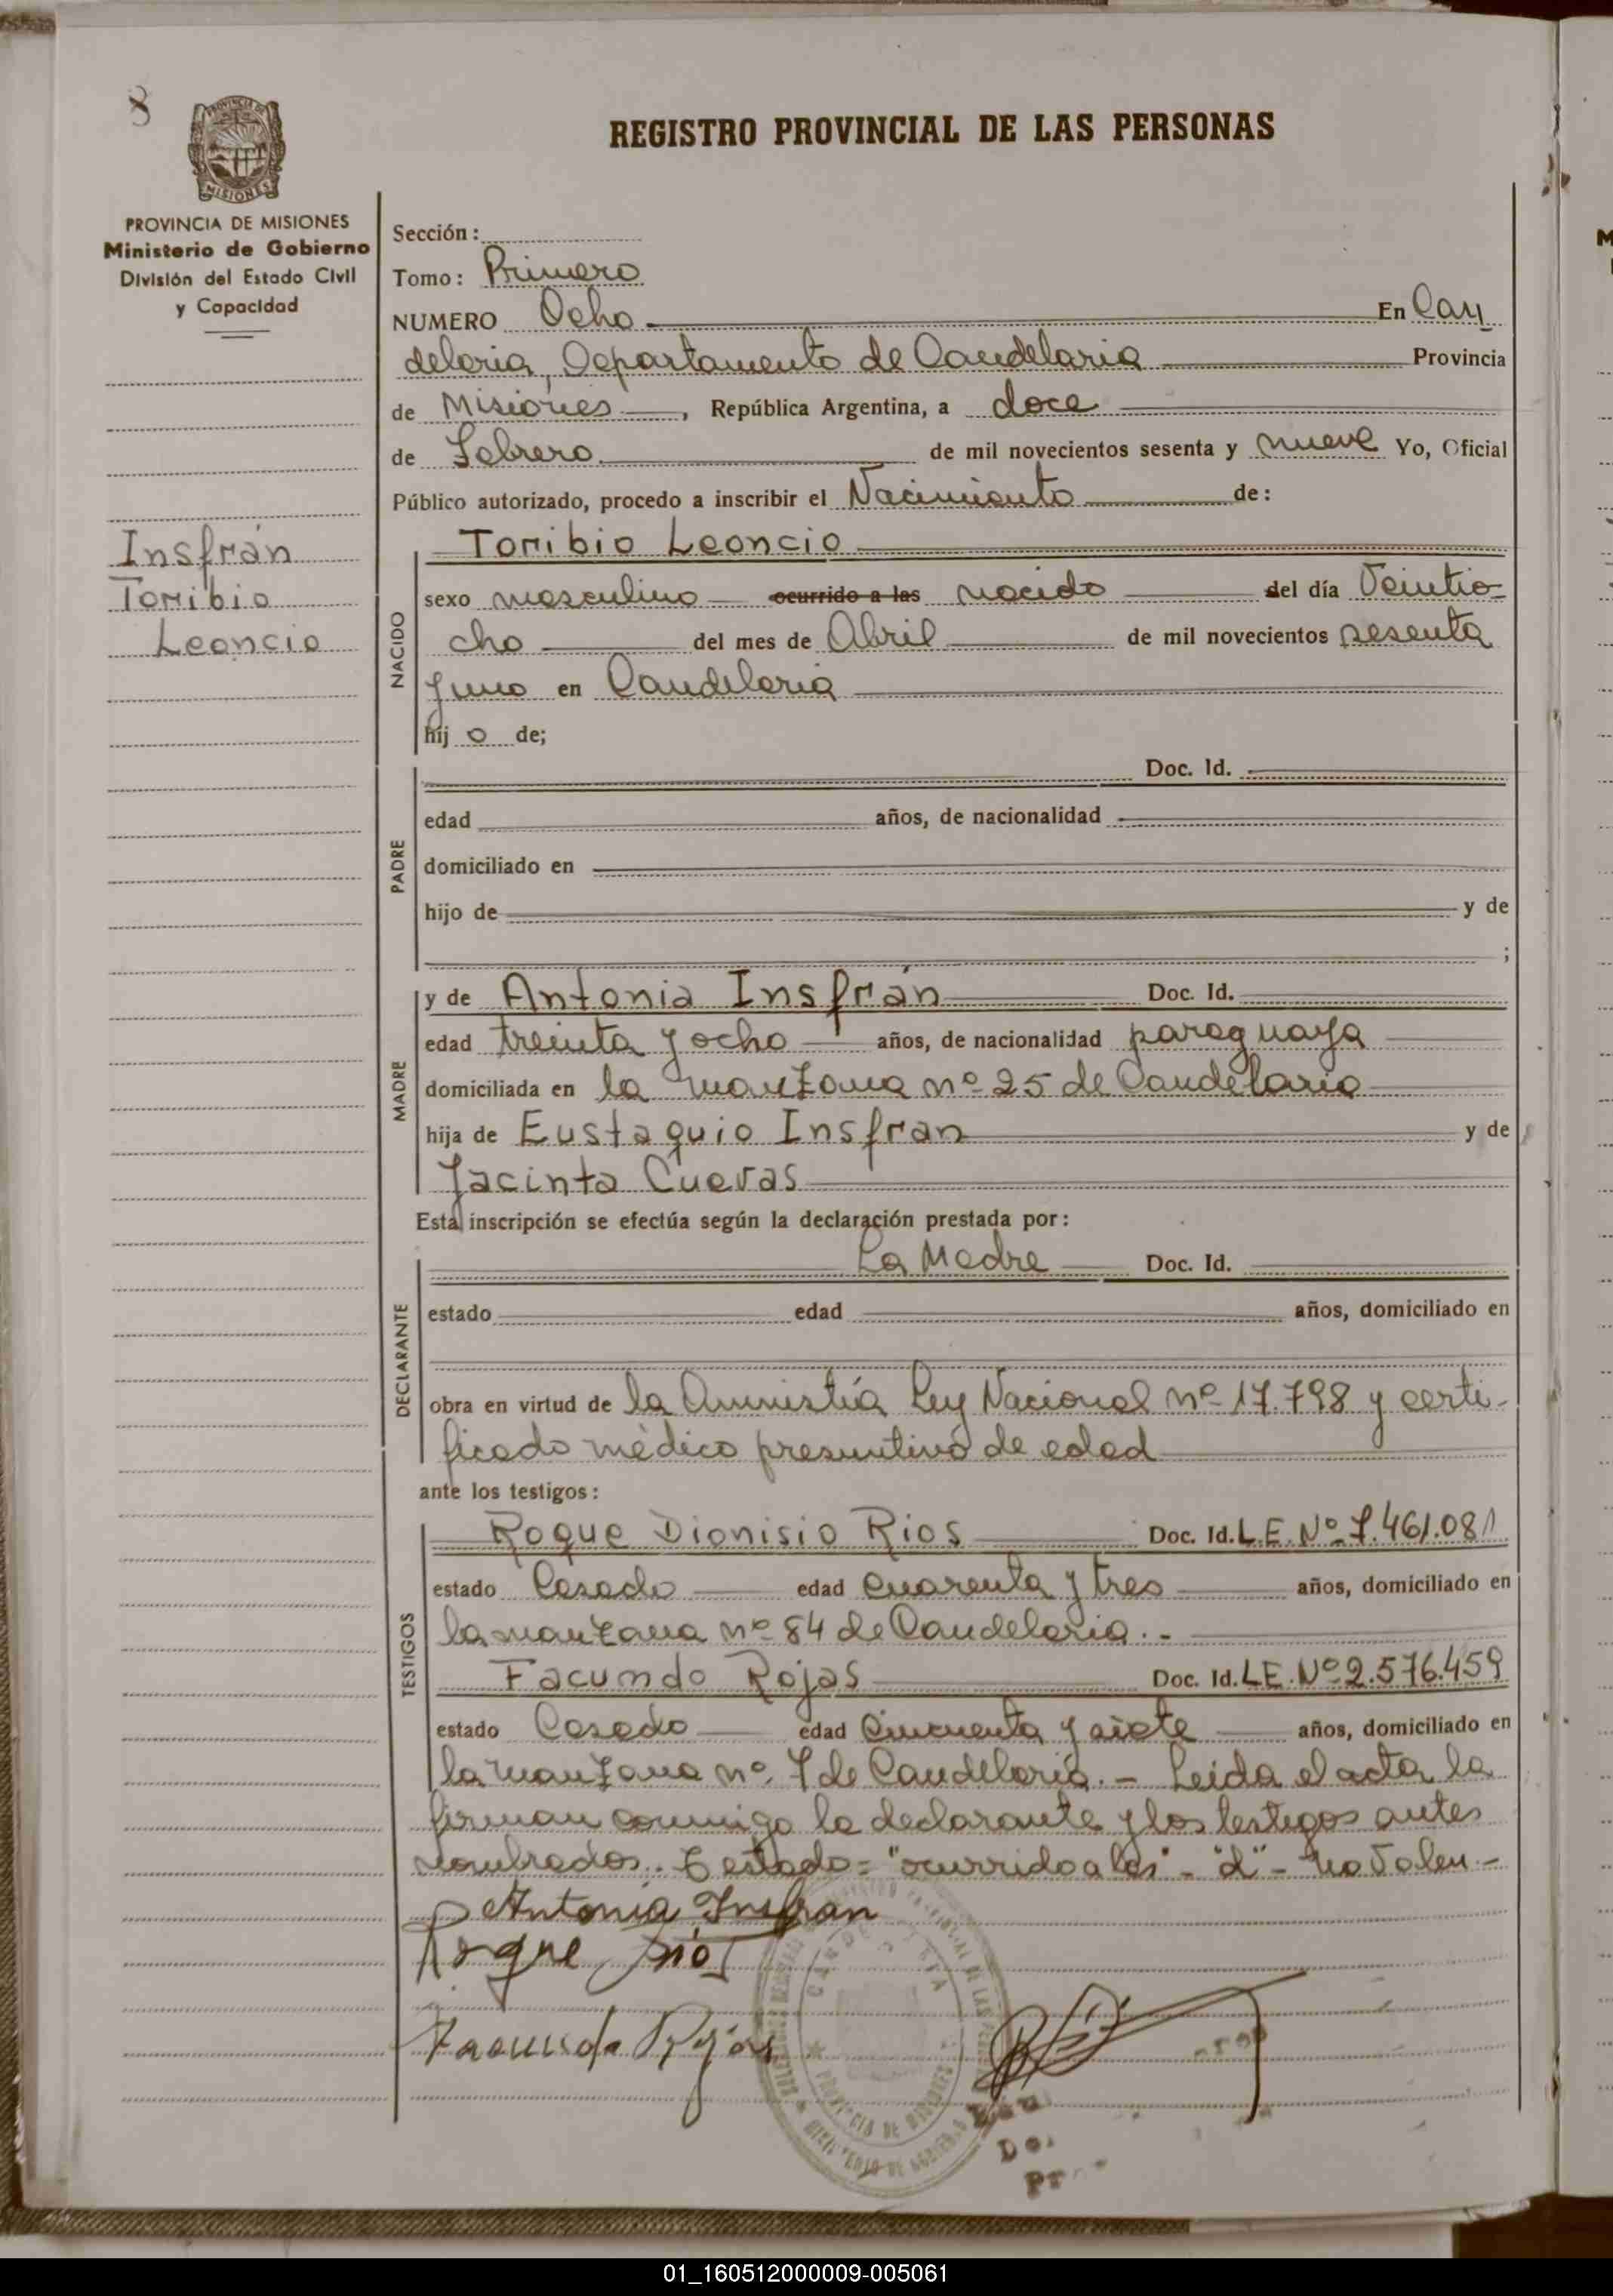 8
PROVINCIA DE MISIONES
Ministerio de Gobierno
División del Estado Civil
y Capacidad
REGISTRO PROVINCIAL DE LAS PERSONAS
Sección:
Tomo: Primero
NUMERO Ocho En Can
delaria, Departamento de Candelaria Provincia
de Misiones, República Argentina, a doce
de Febrero de mil novecientos sesenta y nueve Yo, Oficial
Público autorizado, procedo a inscribir el Nacimiento de:
Insfrán
Toribio
Leoncio
NACIDO
Toribio Leoncio
sexo masculino ocurrido a las nacido del día Veintio
cho del mes de Abril de mil novecientos sesenta
y uno en Candelaria
hij o de;
PADRE
Doc. Id.
edad años, de nacionalidad
domiciliado en
hijo de y de
;
MADRE
y de Antonia Insfrán Doc. Id.
edad treinta y ocho años, de nacionalidad paraguaya
domiciliada en la manzana nº 25 de Candelaria
hija de Eustaquio Insfran y de
Jacinta Cuevas
Esta inscripción se efectúa según la declaración prestada por:
DECLARANTE
La Madre Doc. Id.
estado edad años, domiciliado en
obra en virtud de la Amnistía Ley Nacional nº 17.798 y certi-
ficado médico presuntivo de edad
ante los testigos:
TESTIGOS
Roque Dionisio Rios Doc. Id. L.E. Nº 7.461.081
estado Casado edad cuarenta y tres años, domiciliado en
la manzana nº 84 de Candelaria.-
Facundo Rojas Doc. Id. L.E. Nº 2.576.459
estado Casado edad Cincuenta y siete años, domiciliado en
la manzana nº 7 de Candelaria.- Leida el acta la
firman conmigo la declarante y los testigos antes
nombrados. Testado= "ocurrido a las"- "d"- No Valen.-
Antonia Insfran
Roque Rios
Facundo Rojas
PROVINCIA DE MISIONES
01_160512000009-005061